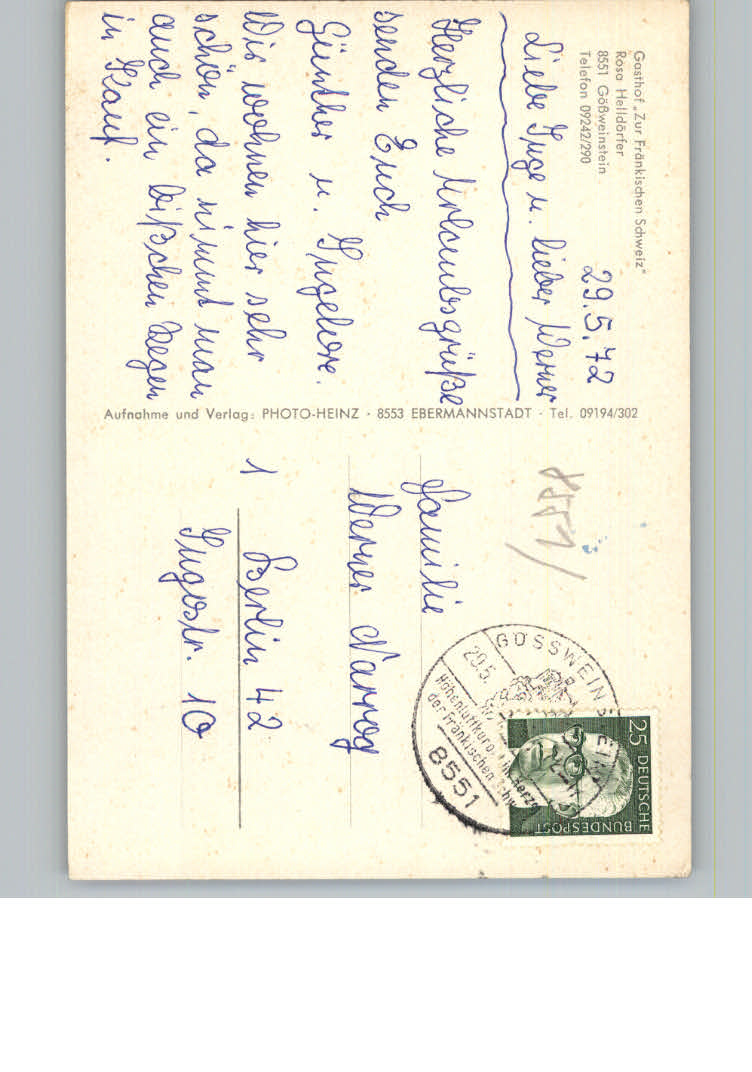 Gasthof „Zur Fränkischen Schweiz"
Rosa Helldörfer
8551 Gößweinstein
Telefon 09242/290
29.5.72
Liebe Inge u. lieber Werner
Herzliche Urlaubsgrüße
senden Euch
Günther u. Ingelore.
Wir wohnen hier sehr
schön, da nimmt man
auch ein bißchen Regen
in Kauf.
Aufnahme und Verlag: PHOTO-HEINZ · 8553 EBERMANNSTADT · Tel. 09194/302
8551
Familie
Werner Narrog
1 Berlin 42
Ingostr. 10
GÖSSWEINSTEIN
29.5.
Höhenluftkurort im Herzen
der Fränkischen
8551
25 DEUTSCHE
BUNDESPOST